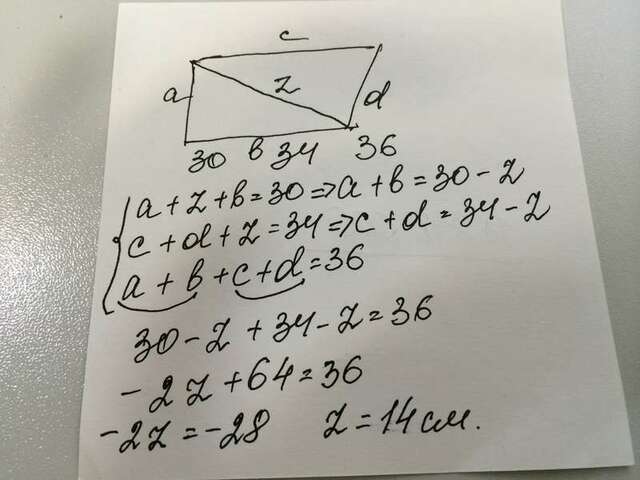 c
a z d
30 b 34 36
a + z + b = 30 => a + b = 30 - z
c + d + z = 34 => c + d = 34 - z
a + b + c + d = 36
30 - z + 34 - z = 36
- 2z + 64 = 36
- 2z = -28 z = 14 см.